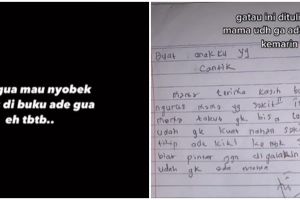 gua mau nyobek
di buku ade gua
eh tbtb..
gatau ini dituli
mama udh ga ad
kemarin
Buat anakku yg
Cantik
mama terima kasih b
ngurus mama yg sakit
mama takut gk bisa
udah gk kuat nahan
titip ade kiki ke
biar pintar jgn di galakin
udah gk ada mama